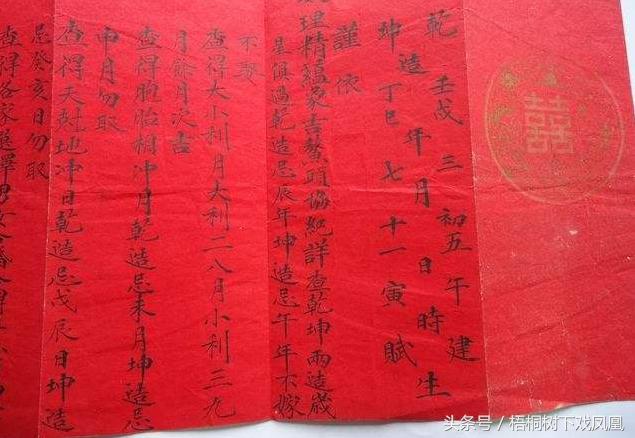 囍
乾 壬戌 三 初五 午 建
造 年 月 日 時 生
坤 丁巳 七 十一 寅 賦
謹依
理精蘊象吉鰲頭協紀詳查乾坤兩造歲
星俱過乾造忌辰年坤造忌午年不嫁
不娶
查得大小利月大利二八月小利三九
月餘月次吉
查得胞胎相冲月乾造忌未月坤造忌
申月勿取
查得天尅地冲日乾造忌戊辰日坤造
忌癸亥日勿取
查得各家選擇男女合婚
头条号／梧桐树下戏凤凰